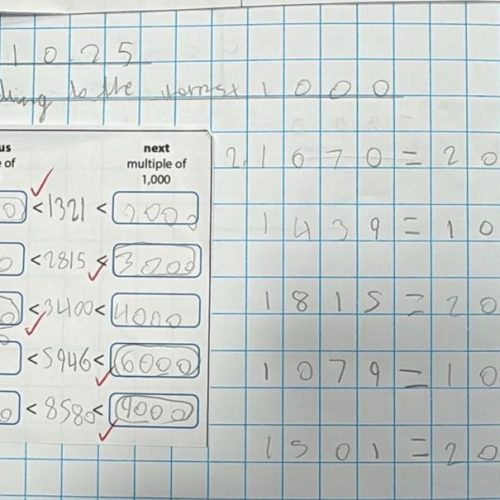 1025
to the 1000
us next
of multiple of
1,000
0 < 1321 < 2000
0 < 2815 < 3000
0 < 3400 < 4000
< 5946 < 6000
0 < 8580 < 9000
2. 1670 = 20
1439 = 10
1815 = 20
1079 = 10
1501 = 20